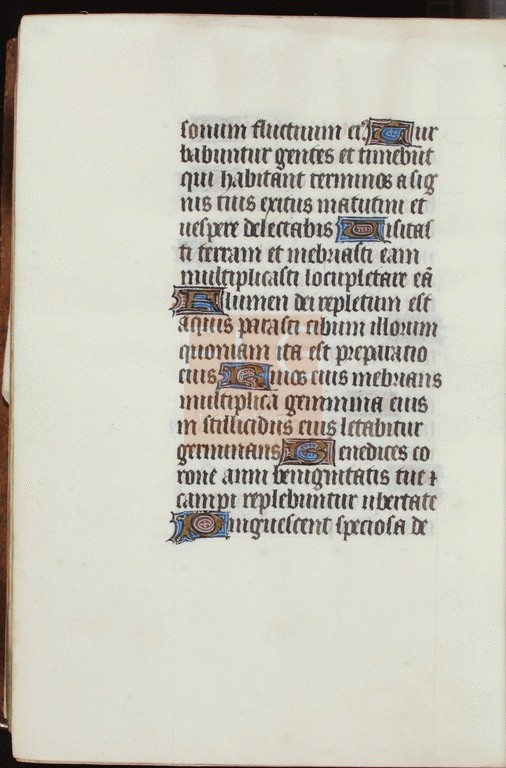 sonum fluctuum ei9. Tur
babuntur gentes et timebūt
qui habitant terminos a sig
nis tuis exitus matutini et
uespere delectabis Uisitas
ti terram et inebriasti eam
multiplicasti locupletare eā
Flumen dei repletum est
aquis parasti cibum illorum
quoniam ita est preparatio
eius Riuos eius inebrians
multiplica genimina eius
in stillicidiis eius letabitur
germinans Benedices co
rone anni benignitatis tue ⁊
campi replebuntur ubertate
Pinguescent speciosa de